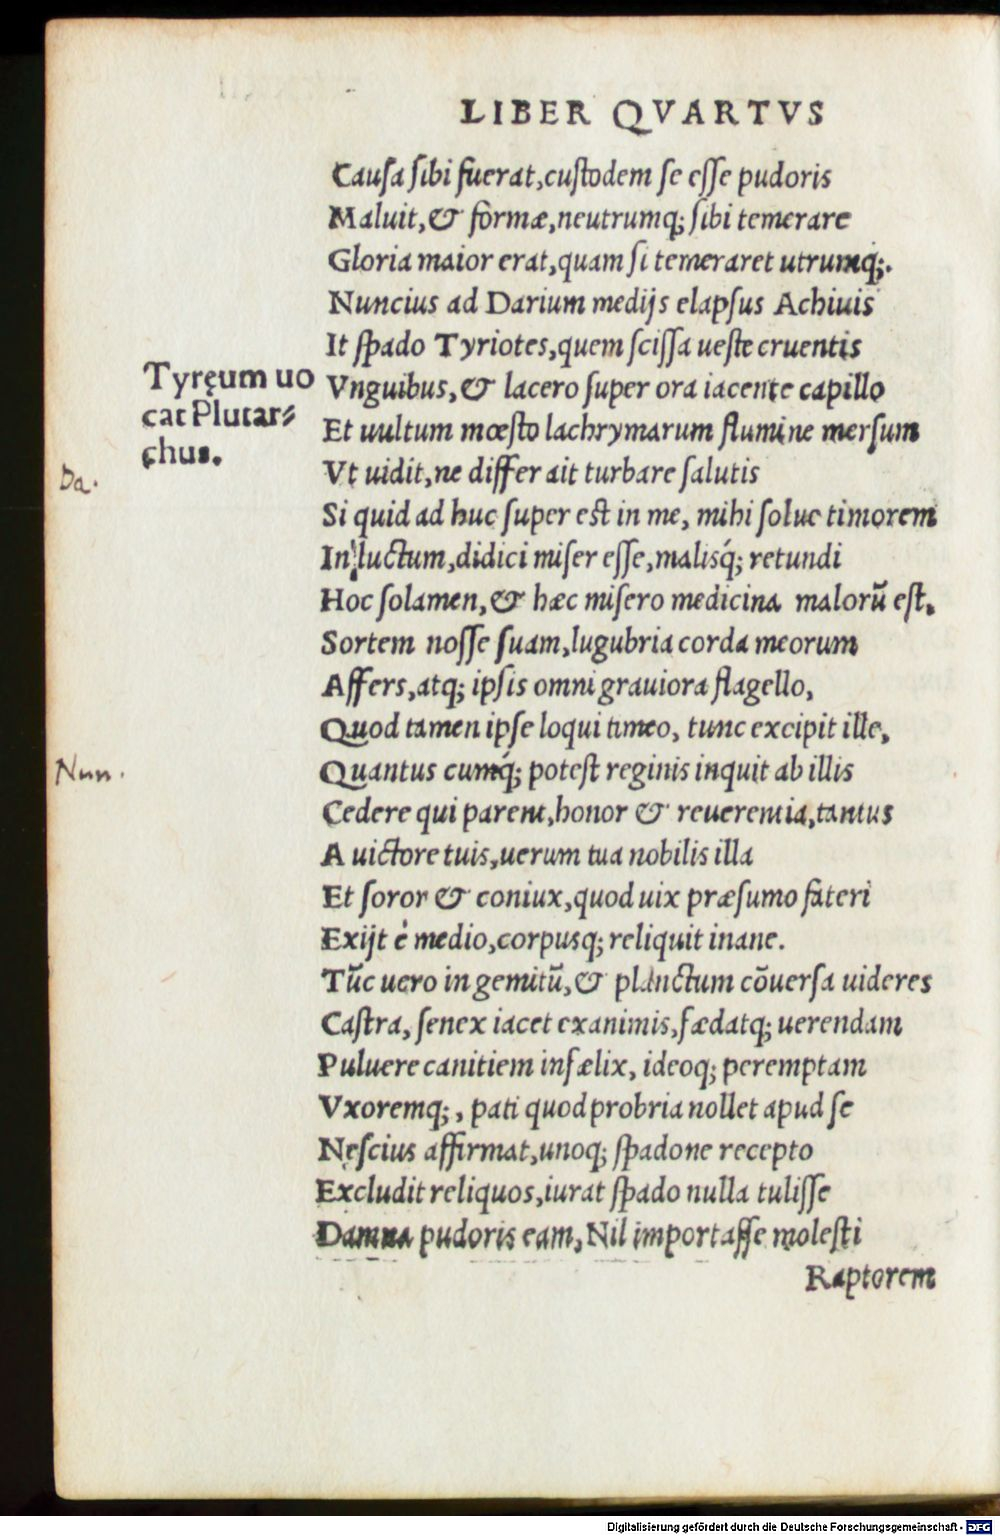 LIBER QVARTVS
Causa sibi fuerat,custodem se esse pudoris
Maluit,& formæ,neutrumq; sibi temerare
Gloria maior erat,quam si temeraret utrumq;.
Nuncius ad Darium medijs elapsus Achiuis
It spado Tyriotes,quem scissa ueste cruentis
Tyręum uo
cat Plutar⸗
chus.
Vnguibus,& lacero super ora iacente capillo
Et uultum mœsto lachrymarum flumine mersum
Da.
Vt uidit,ne differ ait turbare salutis
Si quid ad huc super est in me, mihi solue timorem
In luctum,didici miser esse,malisq́; retundi
Hoc solamen,& hæc misero medicina malorũ est.
Sortem nosse suam,lugubria corda meorum
Affers,atq; ipsis omni grauiora flagello,
Quod tamen ipse loqui timeo, tunc excipit ille,
Nun.
Quantus cumq́; potest reginis inquit ab illis
Cedere qui parent,honor & reuerentia,tantus
A uictore tuis,uerum tua nobilis illa
Et soror & coniux,quod uix præsumo fateri
Exijt è medio,corpusq; reliquit inane.
Tũc uero in gemitũ,& planctum cõuersa uideres
Castra, senex iacet exanimis,fædatq; uerendam
Puluere canitiem infælix, ideoq; peremptam
Vxoremq;, pati quod probria nollet apud se
Nęscius affirmat,unoq; spadone recepto
Excludit reliquos,iurat spado nulla tulisse
Damna pudoris eam, Nil importasse molesti
Raptorem
Digitalisierung gefördert durch die Deutsche Forschungsgemeinschaft - DFG